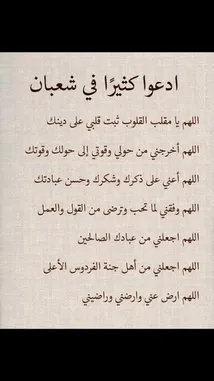 ادعوا كثيرًا في شعبان
اللهم يا مقلب القلوب ثبت قلبي على دينك
اللهم أخرجني من حولي وقوتي إلى حولك وقوتك
اللهم أعني على ذكرك وشكرك وحسن عبادتك
اللهم وفقني لما تحب وترضى من القول والعمل
اللهم اجعلني من عبادك الصالحين
اللهم اجعلني من أهل جنة الفردوس الأعلى
اللهم ارض عني وارضني وراضيني